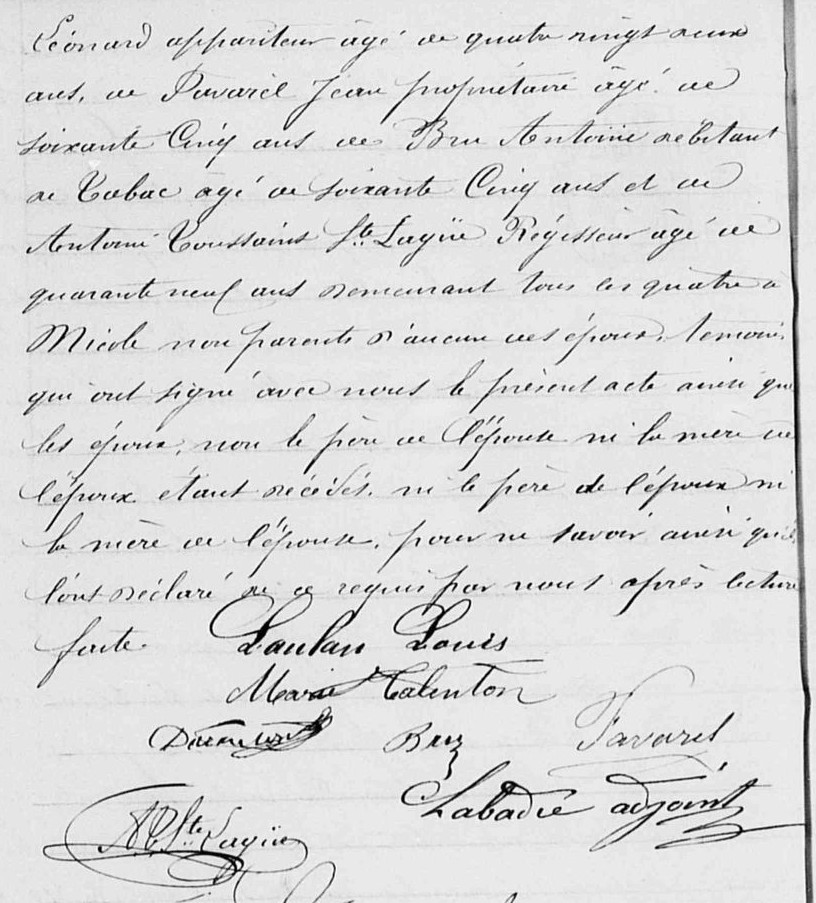 Léonard appariteur âgé de quatre vingt deux
ans, de Favarel Jean propriétaire âgé de
soixante Cinq ans de Bru Antoine débitant
de Tabac âgé de soixante Cinq ans et de
Antoine Toussaint Ste Lagüe Régisseur âgé de
quarante neuf ans demeurant tous les quatre à
non parents d'aucun des époux, témoins
qui ont signé avec nous le présent acte ainsi que
les époux, non le père de l'épouse ni la mère de
l'époux étant décédés. ni le père de l'époux ni
la mère de l'épouse, pour ne savoir ainsi qu'ils
l'ont déclaré de ce requis par nous après lecture
faite.
Laulan Louis
Marie Talenton
Bru Favarel
Labadie adjoint
Ste Lagüe